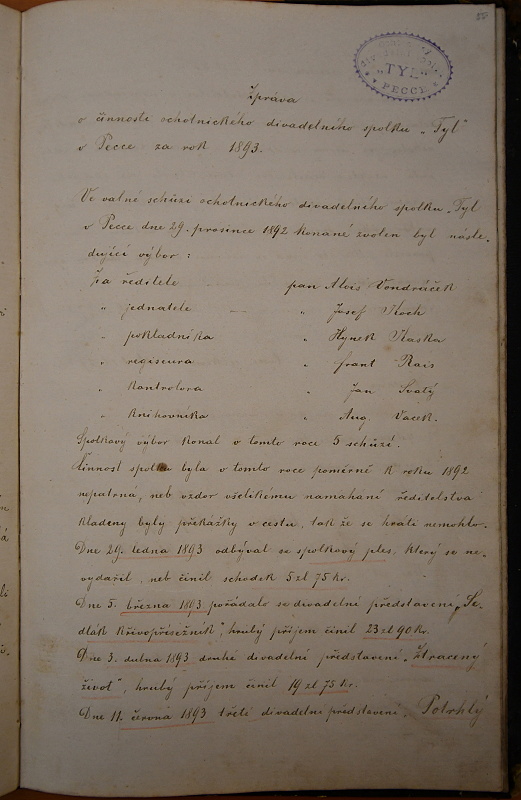 "TYL"
PECCE
Zpráva
o činnosti ochotnického divadelního spolku „Tyl"
v Pecce za rok 1893.
Ve valné schůzi ochotnického divadelního spolku „Tyl
v Pecce dne 29. prosince 1892 konané zvolen byl násle-
dující výbor:
Za ředitele pan Alois Vondráček
" jednatele — " Josef Koch
" pokladníka " Hynek Kaska
" regiseura " Frant Rais
" kontrolora " Jan Svatý
" knihovníka " Aug. Vacek.
Spolkový výbor konal v tomto roce 5 schůzí.
Činnost spolku byla v tomto roce poměrně k roku 1892
nepatrná, neb vzdor všelikému namahání ředitelstva
kladeny byly překážky v cestu, tak že se hrati nemohlo.
Dne 29. ledna 1893 odbýval se spolkový ples, který se ne-
vydařil, neb činil schodek 5 zl 75 kr.
Dne 5. března 1893 pořádalo se divadelní představení „Se-
dlák křivopřísežník", hrubý příjem činil 23 zl 90 kr.
Dne 3. dubna 1893 druhé divadelní představení „Ztracený
život", hrubý příjem činil 19 zl 75 kr.
Dne 11. června 1893 třetí divadelní představení „Potrhlý